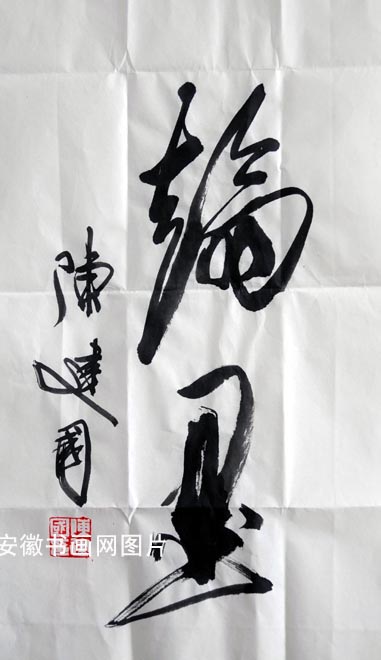 翰墨
陳建國
安徽书画网图片